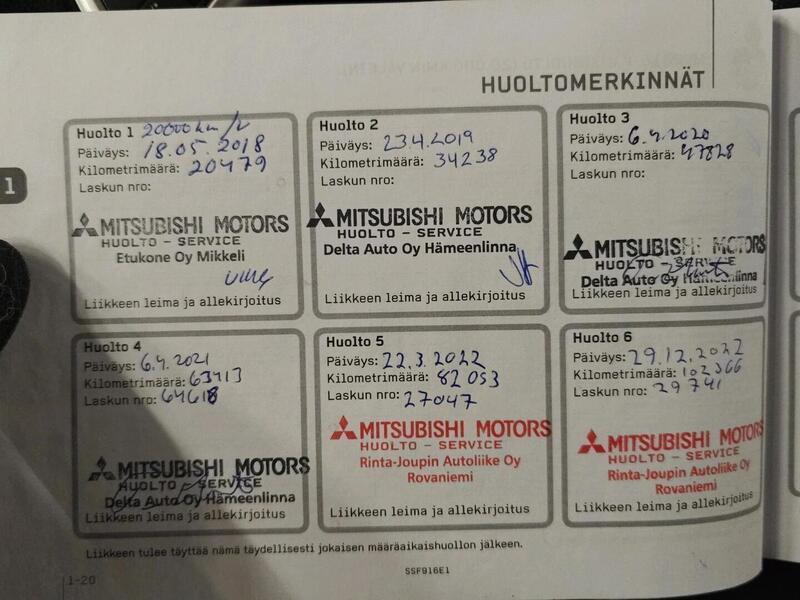 HUOLTOMERKINNÄT
1
Huolto 1 20000 km/v
Päiväys: 18.05.2018
Kilometrimäärä: 20479
Laskun nro:
MITSUBISHI MOTORS
HUOLTO - SERVICE
Etukone Oy Mikkeli
Liikkeen leima ja allekirjoitus
Huolto 2
Päiväys: 23.4.2019
Kilometrimäärä: 34238
Laskun nro:
MITSUBISHI MOTORS
HUOLTO - SERVICE
Delta Auto Oy Hämeenlinna
Liikkeen leima ja allekirjoitus
Huolto 3
Päiväys: 6.4.2020
Kilometrimäärä: 47828
Laskun nro:
MITSUBISHI MOTORS
HUOLTO - SERVICE
Delta Auto Oy Hämeenlinna
Liikkeen leima ja allekirjoitus
Huolto 4
Päiväys: 6.4.2021
Kilometrimäärä: 63413
Laskun nro: 64618
MITSUBISHI MOTORS
HUOLTO - SERVICE
Delta Auto Oy Hämeenlinna
Liikkeen leima ja allekirjoitus
Huolto 5
Päiväys: 22.3.2022
Kilometrimäärä: 82053
Laskun nro: 27047
MITSUBISHI MOTORS
HUOLTO - SERVICE
Rinta-Joupin Autoliike Oy
Rovaniemi
Liikkeen leima ja allekirjoitus
Huolto 6
Päiväys: 29.12.2022
Kilometrimäärä: 102366
Laskun nro: 29741
MITSUBISHI MOTORS
HUOLTO - SERVICE
Rinta-Joupin Autoliike Oy
Rovaniemi
Liikkeen leima ja allekirjoitus
Liikkeen tulee täyttää nämä täydellisesti jokaisen määräaikaishuollon jälkeen.
1-20
SSF916E1